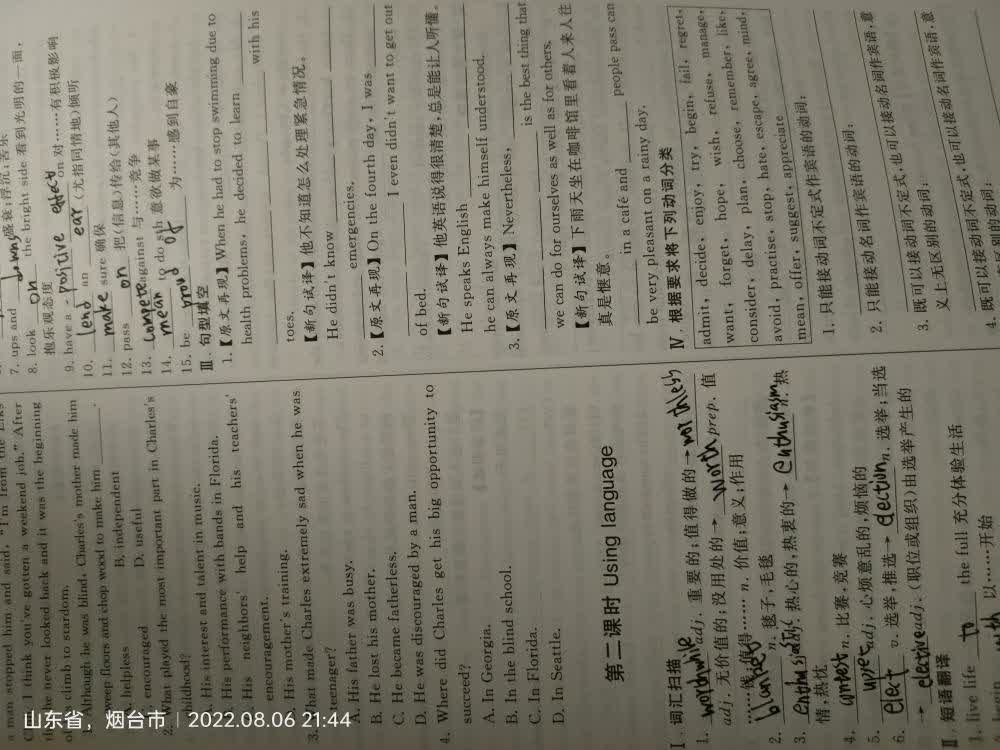 a man stopped him and said, "I'm from the
C. I think you've gotten a weekend job." After
he never looked back and it was the beginning
climb to stardom.
Although he was blind, Charles's mother made him
sweep floors and chop wood to make him ____.
A. helpless B. independent
C. encouraged D. useful
2. What played the most important part in Charles's
childhood?
A. His interest and talent in music.
B. His performance with bands in Florida.
C. His neighbors' help and his teachers'
encouragement.
D. His mother's training.
3. What made Charles extremely sad when he was
teenager?
A. His father was busy.
B. He lost his mother.
C. He became fatherless.
D. He was discouraged by a man.
4. Where did Charles get his big opportunity to
succeed?
A. In Georgia.
B. In the blind school.
C. In Florida.
D. In Seattle.
第二课时 Using language
Ⅰ. 词汇扫描
1. worthwhile adj. 重要的;值得做的→worthless
adj. 无价值的;没用处的→ worth prep. 值
……钱,值得…… n. 价值;意义;作用
2. blanket n. 毯子,毛毯
3. enthusiastic adj. 热心的,热衷的→ enthusiasm n. 热
情,热忱
4. contest n. 比赛,竞赛
5. upset adj. 心烦意乱的,烦恼的
6. elect v. 选举,推选→ election n. 选举;当选
→ elective adj. (职位或组织)由选举产生的
Ⅱ. 短语翻译
1. live life to the full 充分体验生活
with 以……开始
7. ups and downs 盛衰;浮沉;苦乐
8. look on the bright side 看到光明的一面,
抱乐观态度
9. have a positive effect on 对……有积极影响
10. lend an ear (尤指同情地)倾听
11. make sure 确保
12. pass on 把(信息)传给(其他人)
13. compete against 与……竞争
14. mean to do sth 意欲做某事
15. be proud of 为……感到自豪
Ⅲ. 句型填空
1.【原文再现】When he had to stop swimming due to
health problems, he decided to learn ____ with his
toes.
【新句试译】他不知道怎么处理紧急情况。
He didn't know ____
emergencies.
2.【原文再现】On the fourth day, I was ____
____ I even didn't want to get out
of bed.
【新句试译】他英语说得很清楚,总是能让人听懂。
He speaks English ____
he can always make himself understood.
3.【原文再现】Nevertheless, ____
____ is the best thing that
we can do for ourselves as well as for others.
【新句试译】下雨天坐在咖啡馆里看着人来人往
真是惬意。
____ in a café and ____ people pass can
be very pleasant on a rainy day.
Ⅳ. 根据要求将下列动词分类
admit, decide, enjoy, try, begin, fail, regret,
want, forget, hope, wish, refuse, manage,
consider, delay, plan, choose, remember, like,
avoid, practise, stop, hate, escape, agree, mind,
mean, offer, suggest, appreciate
1. 只能接动词不定式作宾语的动词:
2. 只能接动名词作宾语的动词:
3. 既可以接动词不定式,也可以接动名词作宾语,意
义上无区别的动词:
4. 既可以接动词不定式,也可以接动名词作宾语,意
山东省,烟台市 | 2022.08.06 21:44